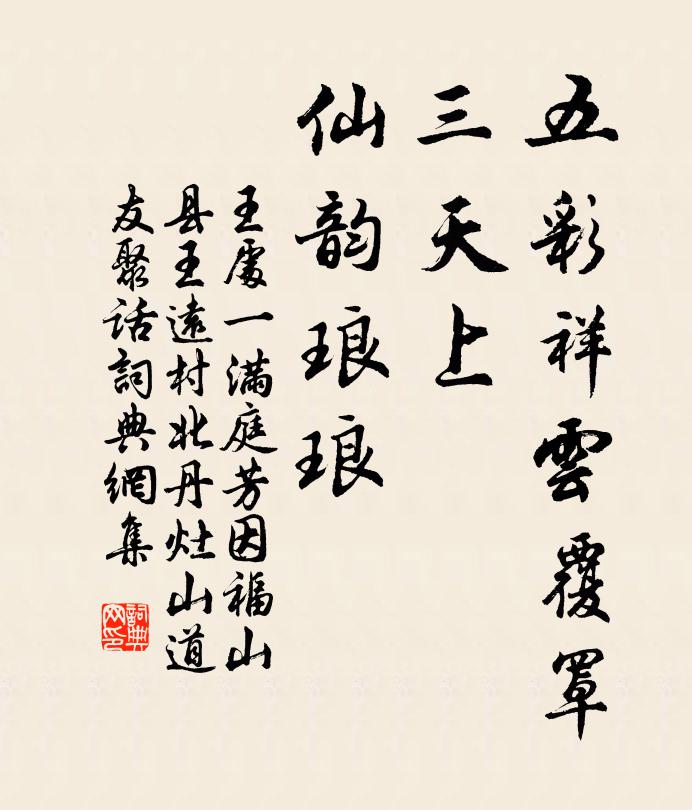 五彩祥雲覆罩
三天上
仙韵琅琅
王處一满庭芳因福山
县王遠村北丹灶山道
友聚话詞典網集
詞典网印